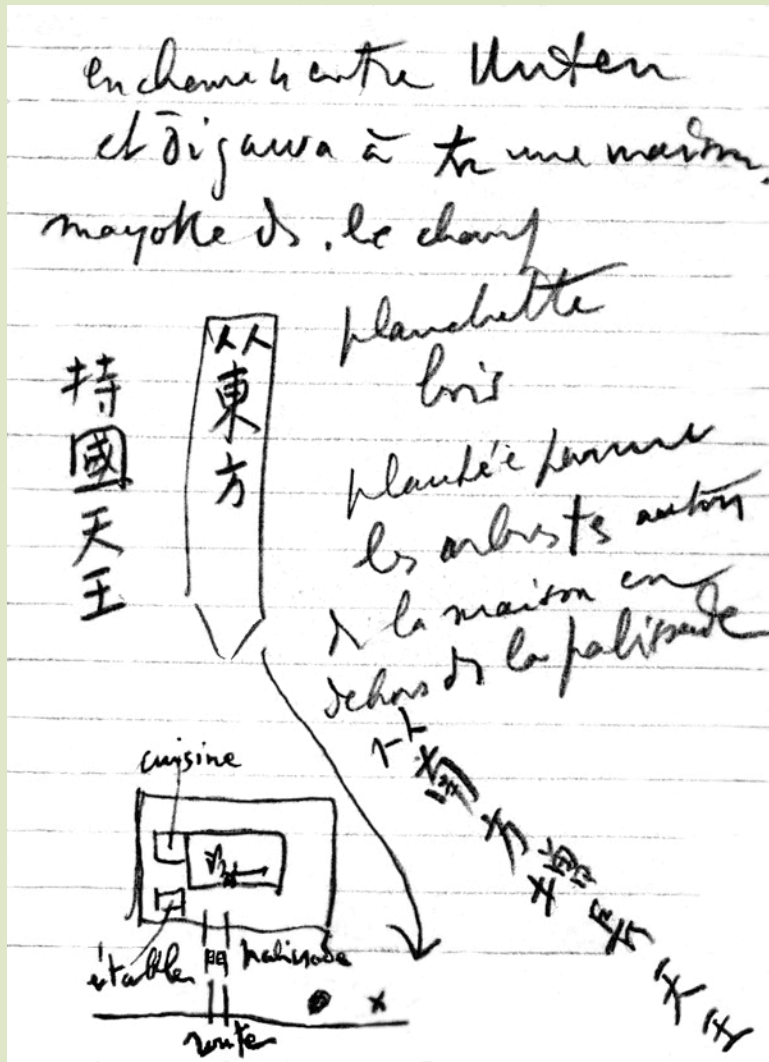 en chemin entre Unten
et Ōigawa à une maison,
mayotte ds. le champ
planchette
bois
東方
持國天王
plantée parmi
les arbustes autour
de la maison en
dehors de la palissade
南方增長天王
cuisine
étable
門
palissade
route